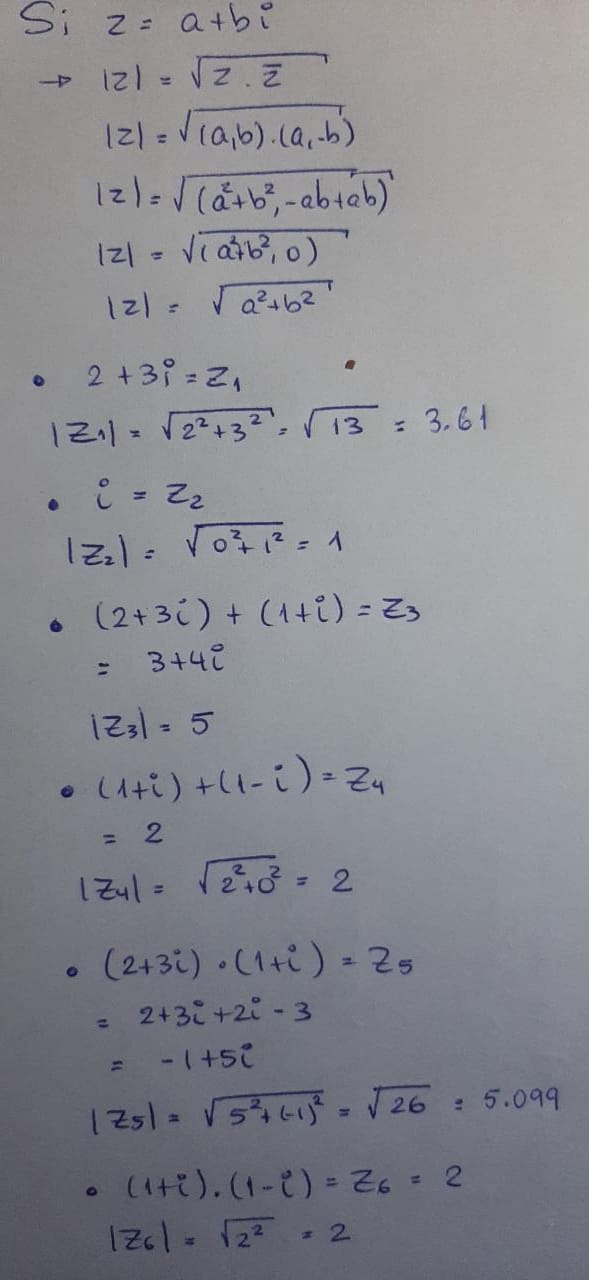 Si z = a+bi
→ |z| = √z . z̄
|z| = √(a,b).(a,-b)
|z| = √(a²+b², -ab+ab)
|z| = √(a²+b², 0)
|z| = √a²+b²
• 2+3i = z₁
|z₁| = √2²+3² = √13 = 3.61
• i = z₂
|z₂| = √0²+1² = 1
• (2+3i) + (1+i) = z₃
= 3+4i
|z₃| = 5
• (1+i) + (1-i) = z₄
= 2
|z₄| = √2²+0² = 2
• (2+3i) . (1+i) = z₅
= 2+3i+2i-3
= -1+5i
|z₅| = √5²+(-1)² = √26 = 5.099
• (1+i).(1-i) = z₆ = 2
|z₆| = √2² = 2